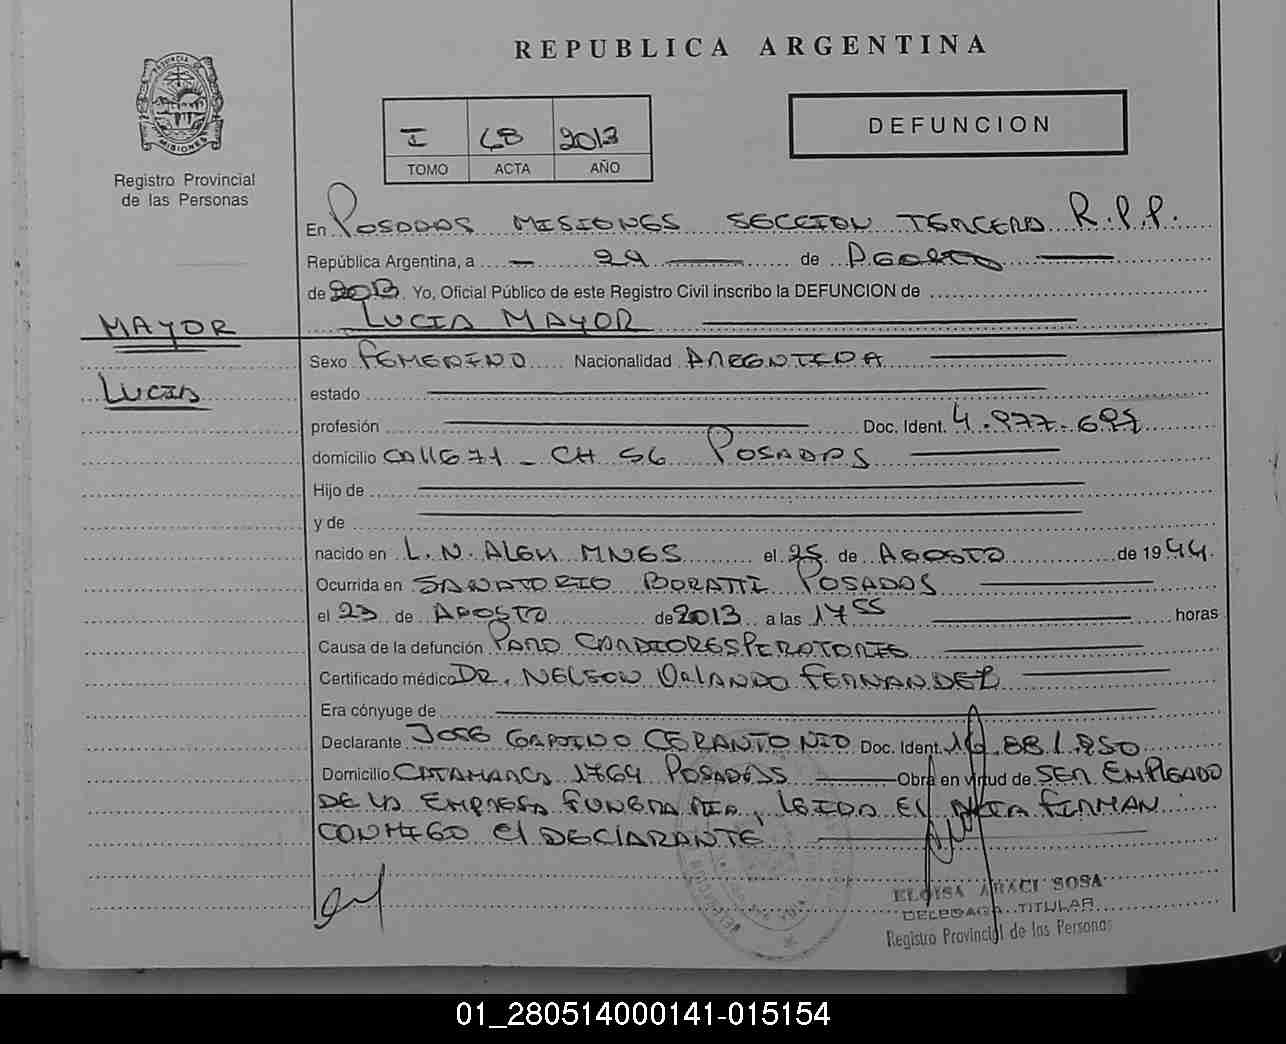 REPUBLICA ARGENTINA
DEFUNCION
I 68 2013
TOMO ACTA AÑO
PROVINCIA DE MISIONES
Registro Provincial
de las Personas
En POSADAS MISIONES SECCION TERCERA R.P.P.
República Argentina, a 29 de AGOSTO
de 2013. Yo, Oficial Público de este Registro Civil inscribo la DEFUNCION de
LUCIA MAYOR
MAYOR
LUCIA
Sexo FEMENINO Nacionalidad ARGENTINA
estado
profesión Doc. Ident. 4.977.692
domicilio CALLE 71 - CH 56 POSADAS
Hijo de
y de
nacido en L.N. ALEM MNES el 25 de AGOSTO de 1944.
Ocurrida en SANATORIO BORATTI POSADAS
el 23 de AGOSTO de 2013 a las 17 55 horas
Causa de la defunción PARO CARDIORESPIRATORIO
Certificado médico DR. NELSON ORLANDO FERNANDEZ
Era cónyuge de
Declarante JOSE CERANTONIO Doc. Ident. 16.881.950
Domicilio CATAMARCA 1764 POSADAS Obra en virtud de SER EMPLEADO
DE LA EMPRESA FUNERARIA, LEIDA EL ACTA FIRMAN
CONMIGO El DECLARANTE
ELOISA ARACI SOSA
DELEGADA TITULAR
Registro Provincial de las Personas
01_280514000141-015154